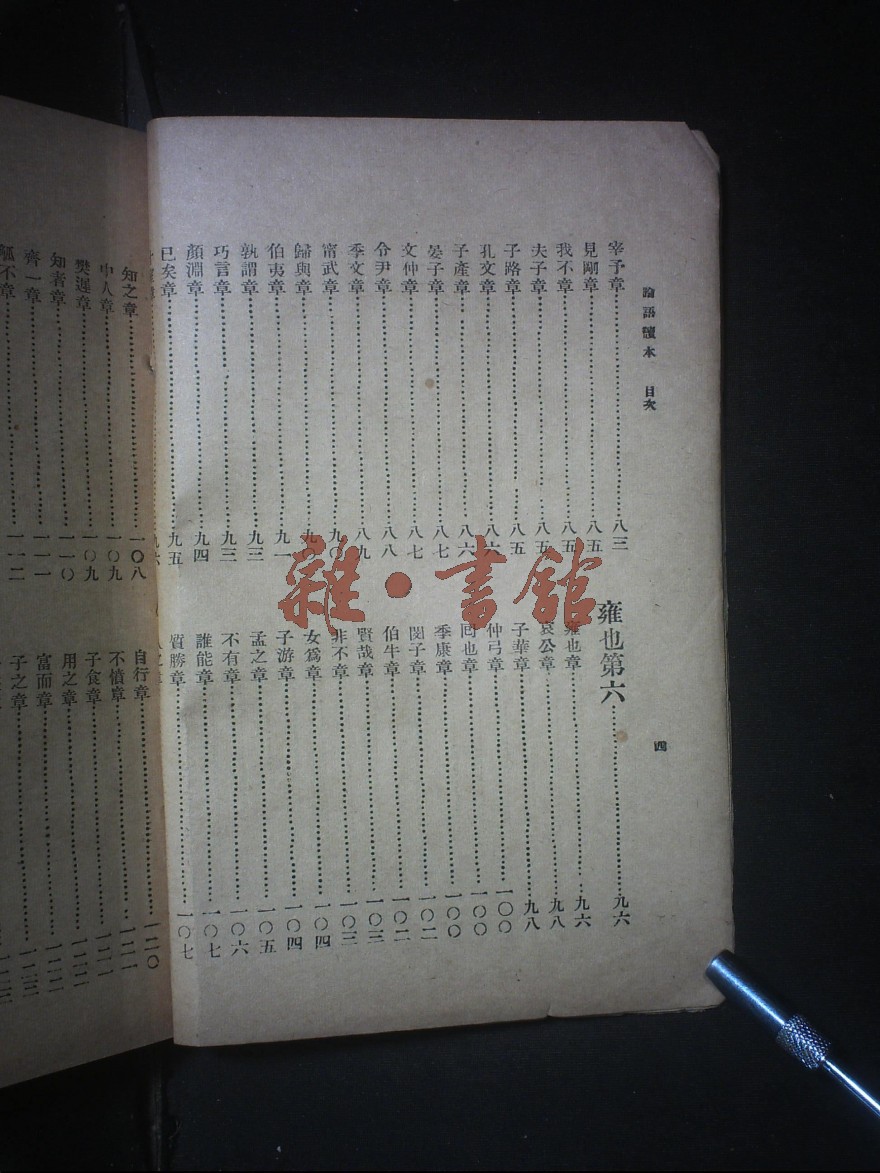 論語讀本 目次 四
宰予章……八三
見剛章……八五
我不章……八五
夫子章……八五
子路章……八五
孔文章……八六
子產章……八六
晏子章……八七
文仲章……八七
令尹章……八八
季文章……八九
甯武章……九〇
歸與章……九
伯夷章……九一
孰謂章……九三
巧言章……九三
顏淵章……九四
已矣章……九五
章……九六
雍也第六……九六
雍也章……九六
哀公章……九八
子華章……九八
仲弓章……一〇〇
回也章……一〇〇
季康章……一〇〇
閔子章……一〇二
伯牛章……一〇二
賢哉章……一〇三
非不章……一〇三
女爲章……一〇四
子游章……一〇四
孟之章……一〇五
不有章……一〇六
誰能章……一〇七
質勝章……一〇七
知之章……一〇八
中人章……一〇九
樊遲章……一〇九
知者章……一一〇
齊一章……一一一
觚不章……一一二
自行章……一二〇
不憤章……一二一
子食章……一二一
用之章……一二二
富而章……一二三
子之章
雜·書館